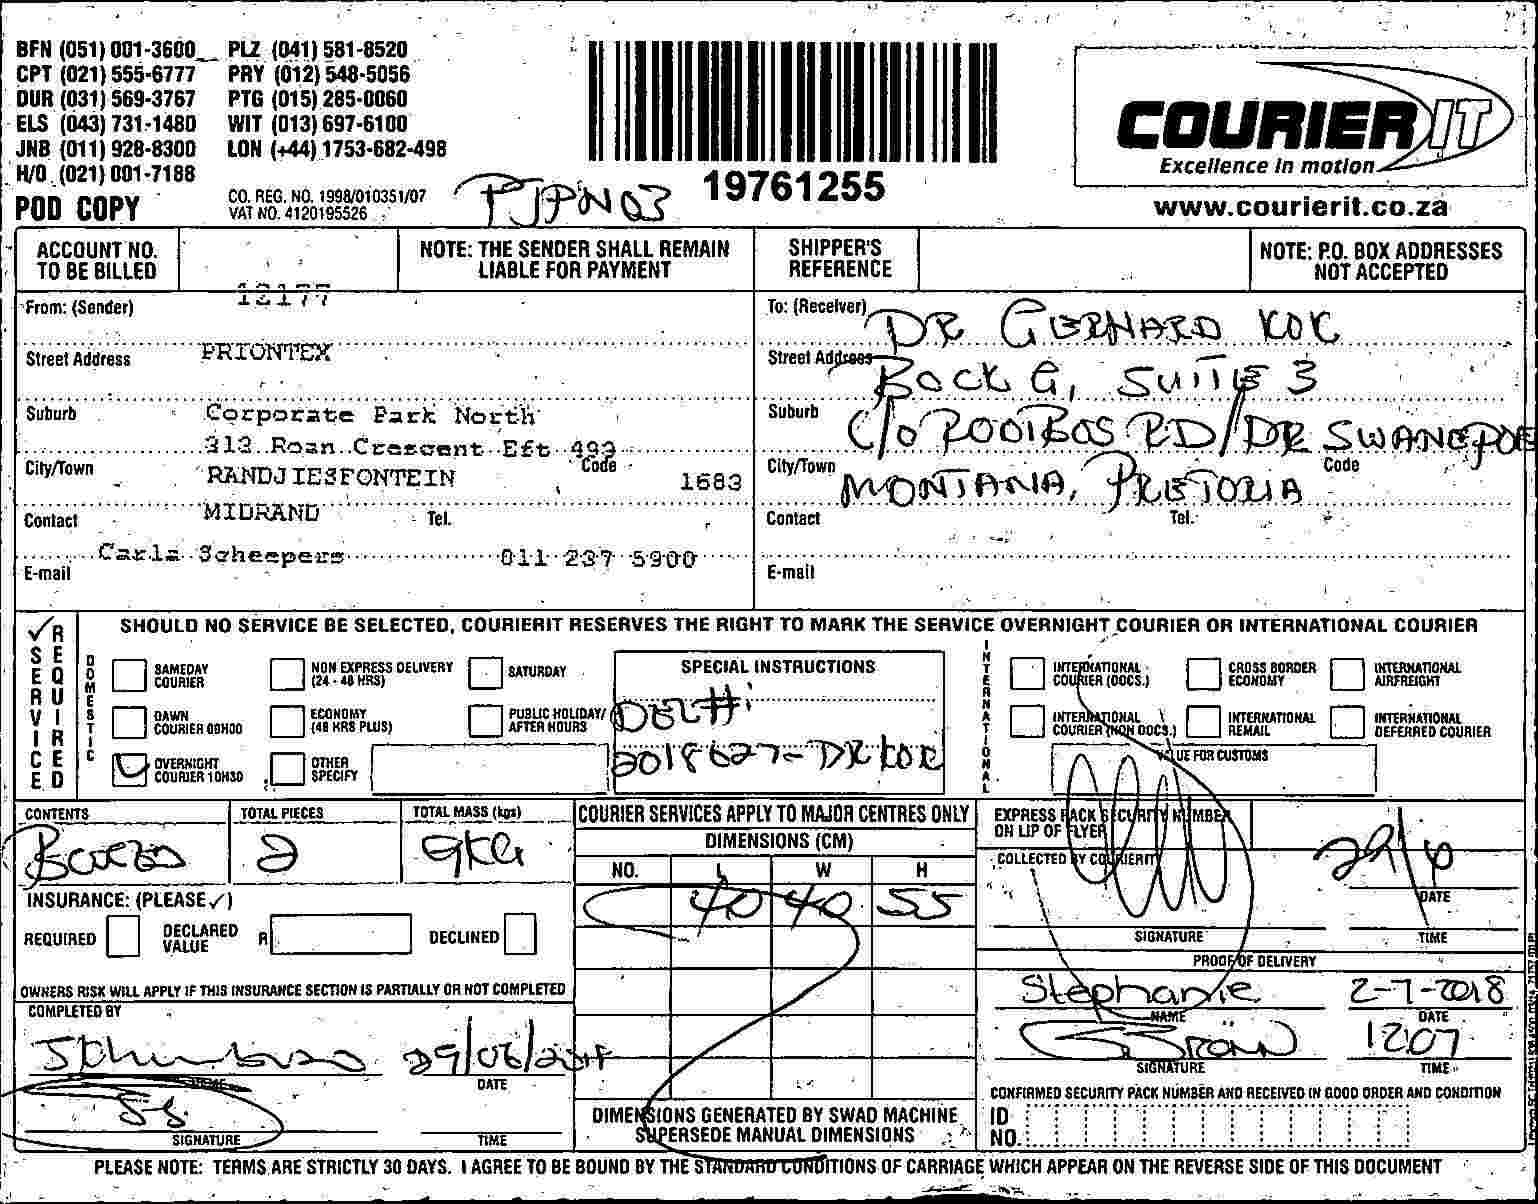 BFN (051) 001-3600 PLZ (041) 581-8520
CPT (021) 555-6777 PRY (012) 548-5056
DUR (031) 569-3767 PTG (015) 285-0060
ELS (043) 731-1480 WIT (013) 697-6100
JNB (011) 928-8300 LON (+44) 1753-682-498
H/O (021) 001-7188
POD COPY
CO. REG. NO. 1998/010351/07
VAT NO. 4120195526
PJPN03
19761255
COURIER IT
Excellence in motion
www.courierit.co.za
ACCOUNT NO. TO BE BILLED
12177
NOTE: THE SENDER SHALL REMAIN LIABLE FOR PAYMENT
SHIPPER'S REFERENCE
NOTE: P.O. BOX ADDRESSES NOT ACCEPTED
From: (Sender)
Street Address PRIONTEX
Suburb Corporate Park North
313 Roan Crescent Eft 493
City/Town RANDJIESFONTEIN Code 1683
Contact MIDRAND Tel.
Carla Scheepers 011 237 5900
E-mail
To: (Receiver) DR GERHARD KOK
Street Address BOCK G, SUITE 3
Suburb C/O ROOIBOS RD/DR SWANEPOE
City/Town MONTANA, PRETORIA Code
Contact Tel.
E-mail
SERVICE REQUIRED
SHOULD NO SERVICE BE SELECTED, COURIERIT RESERVES THE RIGHT TO MARK THE SERVICE OVERNIGHT COURIER OR INTERNATIONAL COURIER
DOMESTIC
SAMEDAY COURIER
NON EXPRESS DELIVERY (24 - 48 HRS)
SATURDAY
DAWN COURIER 09H00
ECONOMY (48 HRS PLUS)
PUBLIC HOLIDAY/ AFTER HOURS
OVERNIGHT COURIER 10H30
OTHER SPECIFY
SPECIAL INSTRUCTIONS
DEL#:
2018627-DR KOK
INTERNATIONAL
INTERNATIONAL COURIER (DOCS.)
CROSS BORDER ECONOMY
INTERNATIONAL AIRFREIGHT
INTERNATIONAL COURIER (NON DOCS.)
INTERNATIONAL REMAIL
INTERNATIONAL DEFERRED COURIER
VALUE FOR CUSTOMS
CONTENTS
TOTAL PIECES 2
TOTAL MASS (kgs) 9KG
INSURANCE: (PLEASE ✓)
REQUIRED
DECLARED VALUE R
DECLINED
OWNERS RISK WILL APPLY IF THIS INSURANCE SECTION IS PARTIALLY OR NOT COMPLETED
COMPLETED BY
NAME
29/06/2018
DATE
SIGNATURE
TIME
COURIER SERVICES APPLY TO MAJOR CENTRES ONLY
DIMENSIONS (CM)
NO. L W H
40 40 55
DIMENSIONS GENERATED BY SWAD MACHINE SUPERSEDE MANUAL DIMENSIONS
EXPRESS PACK SECURITY NUMBER ON LIP OF FLYER
COLLECTED BY COURIERIT
29/6
DATE
SIGNATURE
TIME
PROOF OF DELIVERY
Stephanie 2-7-2018
NAME DATE
12:07
SIGNATURE TIME
CONFIRMED SECURITY PACK NUMBER AND RECEIVED IN GOOD ORDER AND CONDITION
ID NO.
PLEASE NOTE: TERMS ARE STRICTLY 30 DAYS. I AGREE TO BE BOUND BY THE STANDARD CONDITIONS OF CARRIAGE WHICH APPEAR ON THE REVERSE SIDE OF THIS DOCUMENT